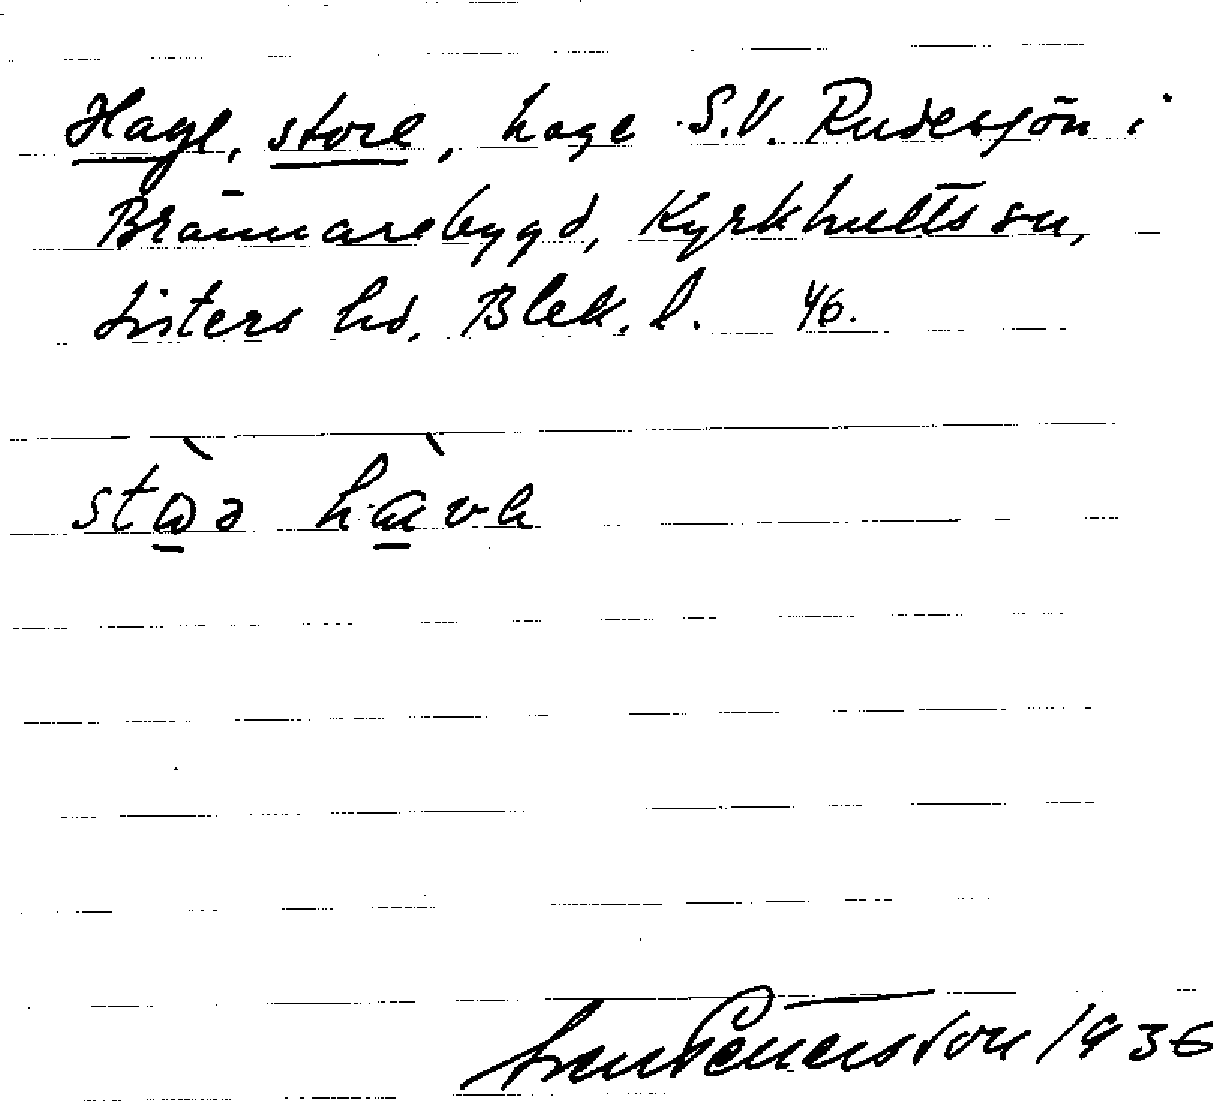 Hage, store, hage S.V. Rudesjön i
Brännarebygd, Kyrkhults sn,
Listers hd, Blek. l. 46.
stòə hàva
Pettersson 1936